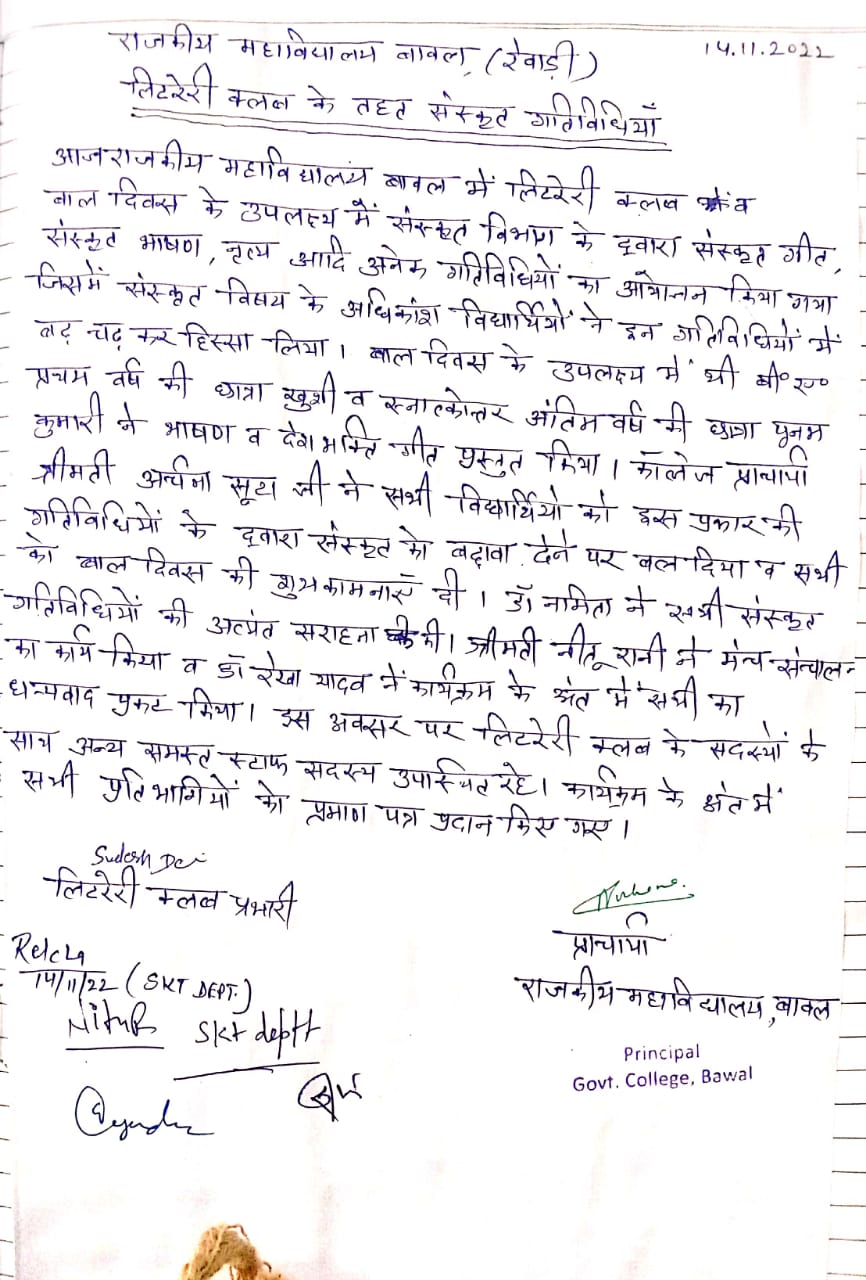 14.11.2022
राजकीय महाविद्यालय बावल, (रेवाड़ी)
लिटरेरी क्लब के तहत संस्कृत गतिविधियाँ
आज राजकीय महाविद्यालय बावल में लिटरेरी क्लब व
बाल दिवस के उपलक्ष्य में संस्कृत विभाग के द्वारा संस्कृत गीत,
संस्कृत भाषण, नृत्य आदि अनेक गतिविधियों का आयोजन किया गया
जिसमें संस्कृत विषय के अधिकांश विद्यार्थियों ने इन गतिविधियों में
बढ़ चढ़ कर हिस्सा लिया। बाल दिवस के उपलक्ष्य में भी बी० ए०
प्रथम वर्ष की छात्रा खुशी व स्नात्कोत्तर अंतिम वर्ष की छात्रा पूनम
कुमारी ने भाषण व देशभक्ति गीत प्रस्तुत किया। कॉलेज प्राचार्या
श्रीमती अर्चना जी ने सभी विद्यार्थियो को इस प्रकार की
गतिविधियों के द्वारा संस्कृत को बढ़ावा देने पर बल दिया व सभी
को बाल दिवस की शुभकामनाएँ दी। डॉ नमिता ने सभी संस्कृत
गतिविधियों की अत्यंत सराहना की। श्रीमती नीतू रानी ने मंच संचालन
का कार्य किया व डॉ रेखा यादव ने कार्यक्रम के अंत में सभी का
धन्यवाद प्रकट किया। इस अवसर पर लिटरेरी क्लब के सदस्यों के
साथ अन्य समस्त स्टाफ सदस्य उपस्थित रहे। कार्यक्रम के अंत में
सभी प्रतिभागियों को प्रमाण पत्र प्रदान किए गए।
Sudesh
लिटरेरी क्लब प्रभारी
प्राचार्या
राजकीय महाविद्यालय, बावल
Rekha
14/11/22 (SKT DEPT.)
Nitu
Skt deptt
Principal
Govt. College, Bawal